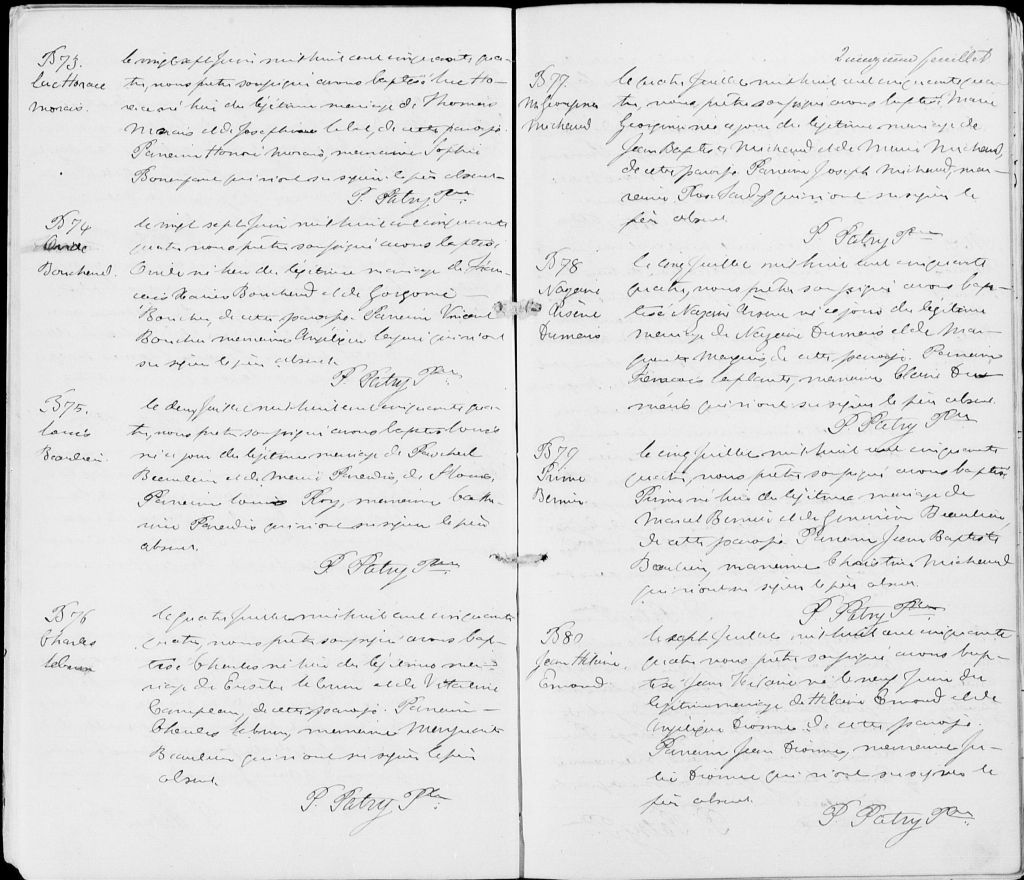 B73.
Luc Horace
Morais.
le vingt sept Juin mil huit cent cinquante qua-
tre, nous prêtre soussigné avons baptisé Luc Ho-
race né hier du légitime mariage de Thomas
Morais et de Josephine Lebel, de cette paroisse.
Parrain Honoré Morais, marraine Sophie
Bonenfant qui n'ont su signer. le père absent.
P. Patry Ptre.
B74
Onide
Bouchard.
le vingt sept Juin mil huit cent cinquante
quatre, nous prêtre soussigné avons baptisé,
Onide né hier du légitime mariage de Fran-
cois Xavier Bouchard et de
Boucher, de cette paroisse. Parrain Vincent
Boucher marraine Angélique qui n'ont
su signer le père absent.
P. Patry Ptre.
B75.
Louis
Beaulieu.
le deux Juillet mil huit cent cinquante qua-
tre, nous prêtre soussigné avons baptisé Louis
né ce jour du légitime mariage de Paschal
Beaulieu et de Marie Paradis, de
Parrain Louis Roy, marraine Cathe-
rine Paradis qui n'ont su signer le père
absent.
P. Patry Ptre.
B76
Charles
Lebrun
le quatre Juillet mil huit cent cinquante
quatre, nous prêtre soussigné avons bap-
tisé Charles né hier du légitime ma-
riage de Eusèbe Lebrun et de Vitaline
Campeau, de cette paroisse. Parrain
Charles Lebrun, marraine Marguerite
Beaulieu qui n'ont su signer le père
absent.
P. Patry Ptre.
feuillet
B77.
M. Georgina
Michaud
le quatre Juillet mil huit cent cinquante qua-
tre, nous prêtre soussigné avons baptisé, Marie
Georgina née ce jour du légitime mariage de
Jean Baptiste Michaud et de Marie Michaud,
de cette paroisse. Parrain Joseph Michaud, mar-
raine qui n'ont su signer le
père absent
P. Patry Ptre
B78
Nazaire
Arsène
Dumais
le cinq Juillet mil huit cent cinquante
quatre, nous prêtre soussigné avons bap-
tisé Nazaire Arsène né ce jour du légitime
mariage de Nazaire Dumais et de Mar-
guerite de cette paroisse. Parrain
Francois Laplante, marraine Claire Du
qui n'ont su signer le père absent.
P. Patry Ptre
B79
Prime
Bernier
le cinq Juillet mil huit cent cinquante
quatre, nous prêtre soussigné avons baptisé
Prime né hier du légitime mariage de
Marcel Bernier et de Geneviève Beaulieu,
de cette paroisse Parrain Jean Baptiste
Beaulieu, marraine Christine Michaud
qui n'ont su signer le père absent.
P. Patry Ptre
B80
Jean Hilaire
Emond
le sept Juillet mil huit cent cinquante
quatre nous prêtre soussigné avons bap-
tisé Jean Hilaire né le neuf Juin du
légitime mariage de Hilaire Emond et de
Angélique Dionne de cette paroisse.
Parrain Jean Dionne, marraine Ju-
lie Dionne qui n'ont su signer le
père absent.
P. Patry Ptre.